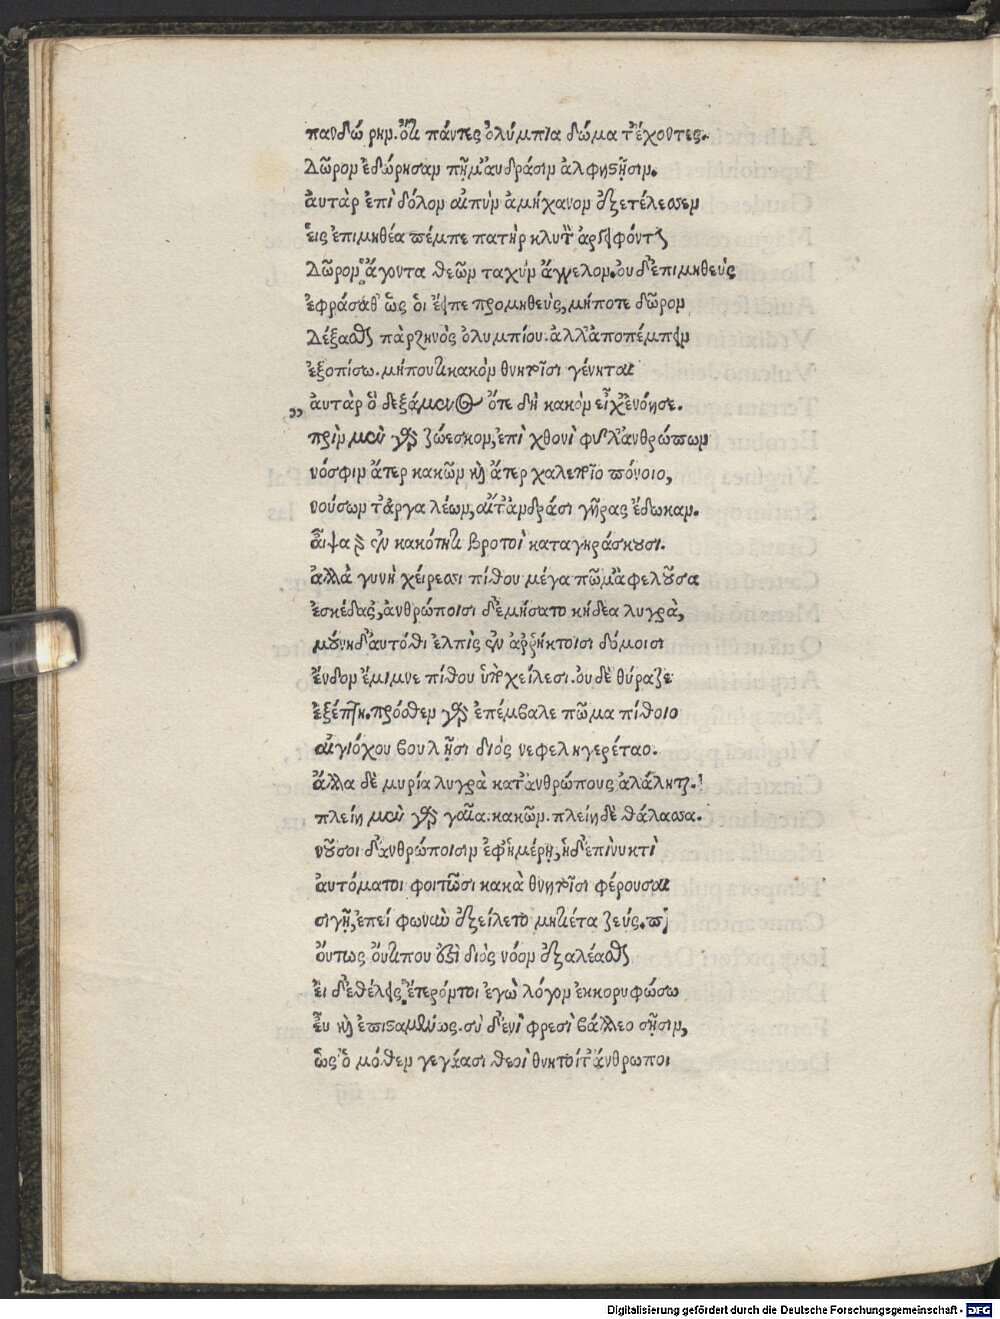 πανδώρην. ὅτι πάντες ὀλύμπια δώματ' ἔχοντες.
Δῶρον ἐδώρησαν πῆμ' ἀνδράσιν ἀλφηστῆσιν.
ἀυτὰρ ἐπὶ δόλον αἰπὺν ἀμήχανον ἐξετέλεσσεν
ἐις ἐπιμηθέα πέμπε πατὴρ κλυτὸν ἀργειφόντην
Δῶρον ἄγοντα θεῶν ταχὺν ἄγγελον. ὀυδ' ἐπιμηθεὺς
ἐφράσαθ' ὥς ὁι ἔειπε προμηθεὺς, μήποτε δῶρον
Δέξασθαι πὰρ ζηνὸς ὀλυμπίου. ἀλλ' ἀποπέμπειν
ἐξοπίσω. μήπου τι κακὸν θνητοῖσι γένηται
„ ἀυτὰρ ὃ δεξάμενος ὅτε δὴ κακὸν εἶχ' ἐνόησε.
πρὶν μὲν γὰρ ζώεσκον, ἐπὶ χθονὶ φῦλ' ἀνθρώπων
νόσφιν ἄτερ κακῶν καὶ ἄτερ χαλεποῖο πόνοιο,
νούσων τ' ἀργαλέων, αἵτ' ἀνδράσι γῆρας ἔδωκαν.
αἶψα γὰρ ἐν κακότητι βροτοὶ καταγηράσκουσι.
ἀλλὰ γυνὴ χείρεσσι πίθου μέγα πῶμ' ἀφελοῦσα
ἐσκέδασ', ἀνθρώποισι δ' ἐμήσατο κήδεα λυγρὰ,
μούνη δ' ἀυτόθι ἐλπὶς ἐν ἀῤῥήκτοισι δόμοισι
ἔνδον ἔμιμνε πίθου ὑπὸ χείλεσι. ὀυδὲ θύραζε
ἐξέπτη. πρόσθεν γὰρ ἐπέμβαλε πῶμα πίθοιο
αἰγιόχου βουλῆσι διὸς νεφεληγερέταο.
ἄλλα δὲ μυρία λυγρὰ κατ' ἀνθρώπους ἀλάληται.
πλείη μὲν γὰρ γαῖα. κακῶν. πλείη δὲ θάλασσα.
νοῦσοι δ' ἀνθρώποισιν ἐφ' ἡμέρη, ἠδ' ἐπὶ νυκτὶ
ἀυτόματοι φοιτῶσι κακὰ θνητοῖσι φέρουσαι
σιγῆ, ἐπεὶ φωνὴν ἐξείλετο μητιέτα ζεύς.
ὅυτως ὄυτι που ἐστὶ διὸς νόον ἐξαλέασθαι
ἐι δ' ἐθέλεις ἕτερόν τοι ἐγὼ λόγον ἐκκορυφώσω
ἐυ καὶ ἐπισταμένως. σὺ δ' ἐνὶ φρεσὶ βάλλεο σῆσιν,
ὡς ὁμόθεν γεγάασι θεοὶ θνητοί τ' ἄνθρωποι
Digitalisierung gefördert durch die Deutsche Forschungsgemeinschaft - DFG